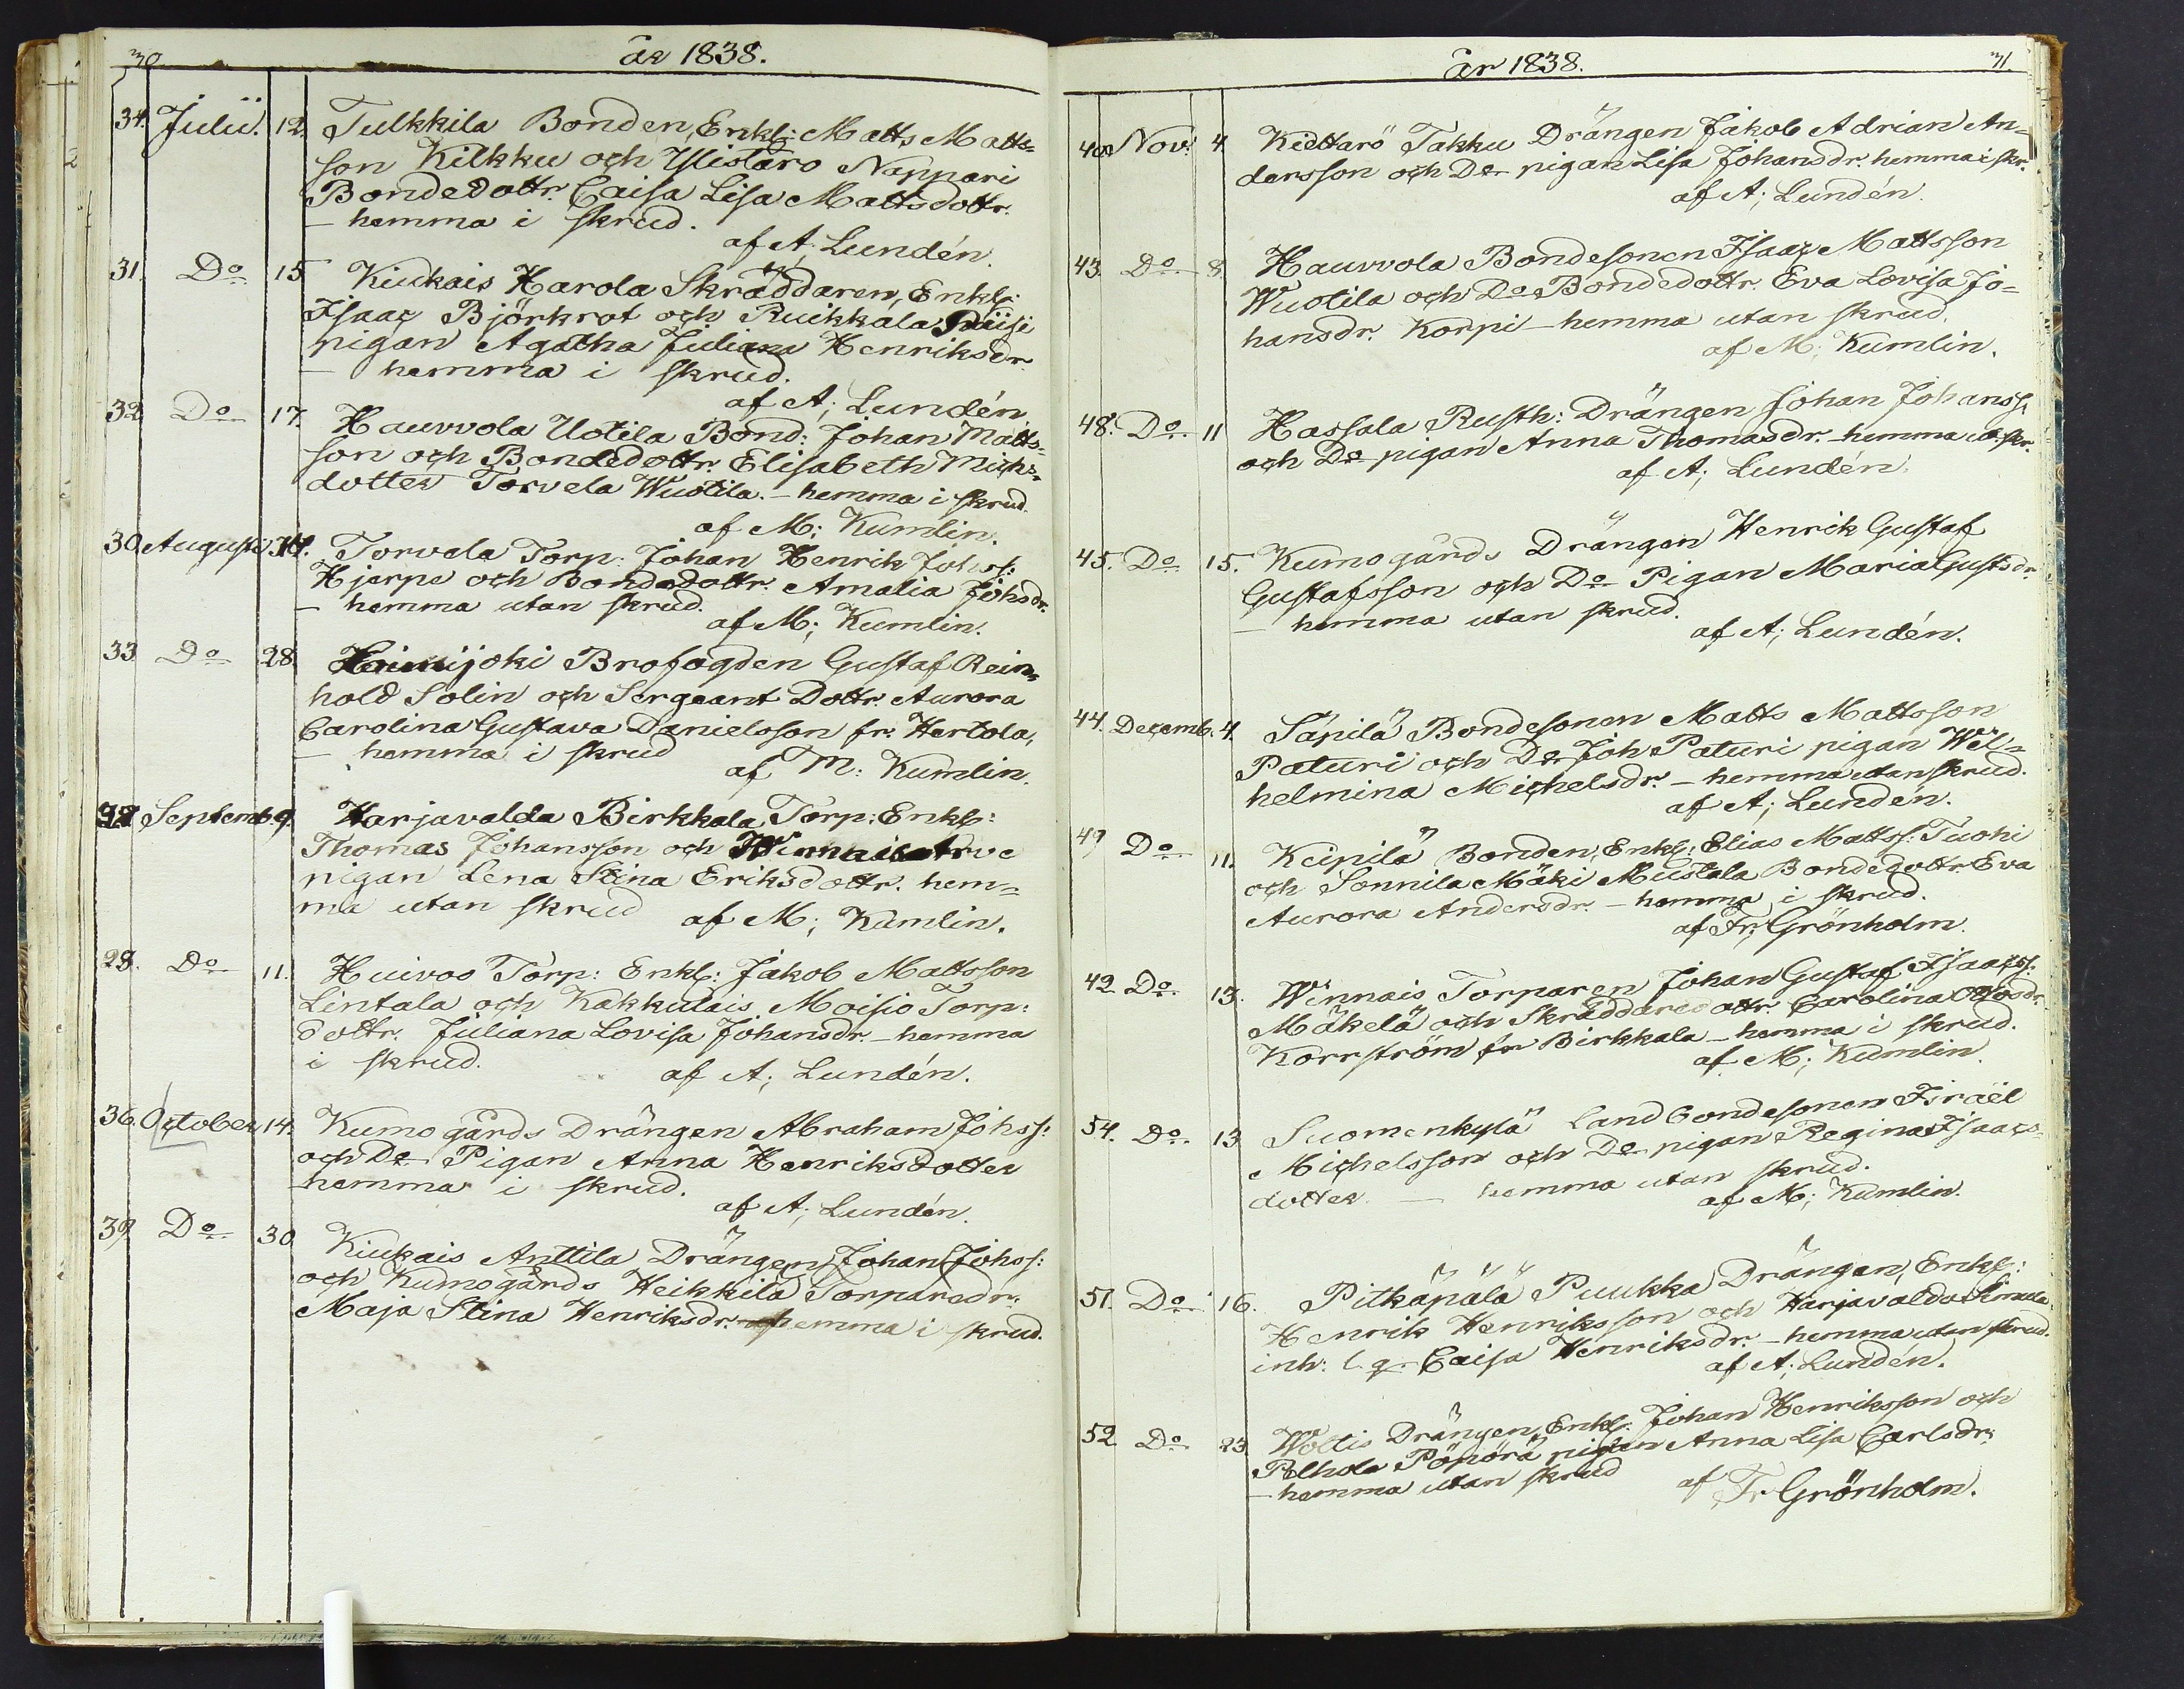 30
år 1838.
34. Julii. 12. Tulkkila Bonden, Enkl: Matts Matts-
son Kilkku och Ylistaro Nappari
Bondedottr. Caisa Lisa Mattsdottr.
– hemma i skrud.
af A; Lundén.
31. Do 15 Kiukais Harola Skräddaren, Enkl:
Isaac Björkrot och Ruckkala
pigan Agatha Juliana Henriksdr.
– hemma i skrud.
af A; Lundén
32. Do 17. Hauvvola Uotila Bond: Johan Matts-
son och Bondedottr. Elisabeth Michs-
dotter Torvela Wuotila. – hemma i skrud.
af M; Kumlin.
30. Augusti 14. Torvala Torp. Johan Henrik Johss:
Hjerpe och Bondedottr. Amalia Johsdr.
– hemma utan skrud.
af M; Kumlin.
33 Do 28. Harjijoki Brofogden Gustaf Rein-
hold Solin och Sergeant Dottr. Aurora
Carolina Gustava Danielsson fr. Hertola,
– hemma i skrud
af M: Kumlin.
Septemb 9. Harjavalda Birkkala Torp: Enkl:
Thomas Johansson och
pigan Lena Stina Eriksdottr. hem-
ma utan skrud
af M; Kumlin.
28. Do 11. Huivoo Torp: Enkl: Jakob Mattsson
Lintala och Kakkulais Moisio Torp:
dottr. Juliana Lovisa Johansdr. – hemma
i skrud.
af A; Lundén.
36. October 14. Kumogårds Drängen Abraham Johss:
och Do Pigan Anna Henriksdotter
hemma i skrud.
af A; Lundén.
39 Do 30. Kiukais Anttila Drängen Johan Johss:
och Kumogårds Heikkilä Torparedr.
Maja Stina Henriksdr. hemma i skrud.
år 1838.
31.
40 Nov: 4. Kiettarö Takku Drängen Jakob Adrian An-
dersson och Do pigan Lisa Johansdr. hemma i skr.
af A; Lundén.
43. Do 8. Hauvvola Bondesonen Isaac Mattsson
Wuotila och Do Bondedottr. Eva Lovisa Jo-
hansdr. Korpi – hemma utan skrud.
af M; Kumlin.
48. Do 11 Hassala Rusth: Drängen Johan Johanss:
och Do pigan Anna Thomasdr. – hemma u. skr.
af A; Lundén.
45. Do 15. Kumogårds Drängen Henrik Gustaf
Gustafsson och Do Pigan Maria Gustsdr.
– hemma utan skrud.
af A; Lundén.
44. Decemb. 4. Säpilä Bondesonen Matts Mattsson
Paturi och Do Joh Paturi pigan Wil-
helmina Michelsdr. – hemma utan skrud.
af A; Lundén.
49 Do 11. Keipilä Bonden, Enkl: Elias Mattss: Tuohi
och Sonnila Mäki Mustala Bondedottr Eva
Aurora Andersdr. – hemma i skrud.
af Fr; Grönholm.
42 Do 13. Winnais Torparen Johan Gustaf Isaacss:
Mäkelä och Skräddaredottr. Carolina
Korrström fr Birkkala – hemma i skrud.
af M; Kumlin.
54. Do 13 Suomenkylä Landbondesonen Israël
Michelsson och Do pigan Regina Isaacs-
dotter. – hemma utan skrud.
af M; Kumlin.
51. Do 16. Pitkäpälä Puukka Drängen, Enkl:
Henrik Henriksson och Harjavalda
inh: l. q. Caisa Henriksdr. – hemma utan skrud.
af A; Lundén.
52 Do 23. Woltis Drängen, Enkl: Johan Henriksson och
Pelhola Pöpörä pigan Anna Lisa Carlsdr;
– hemma utan skrud
af Fr Grönholm.